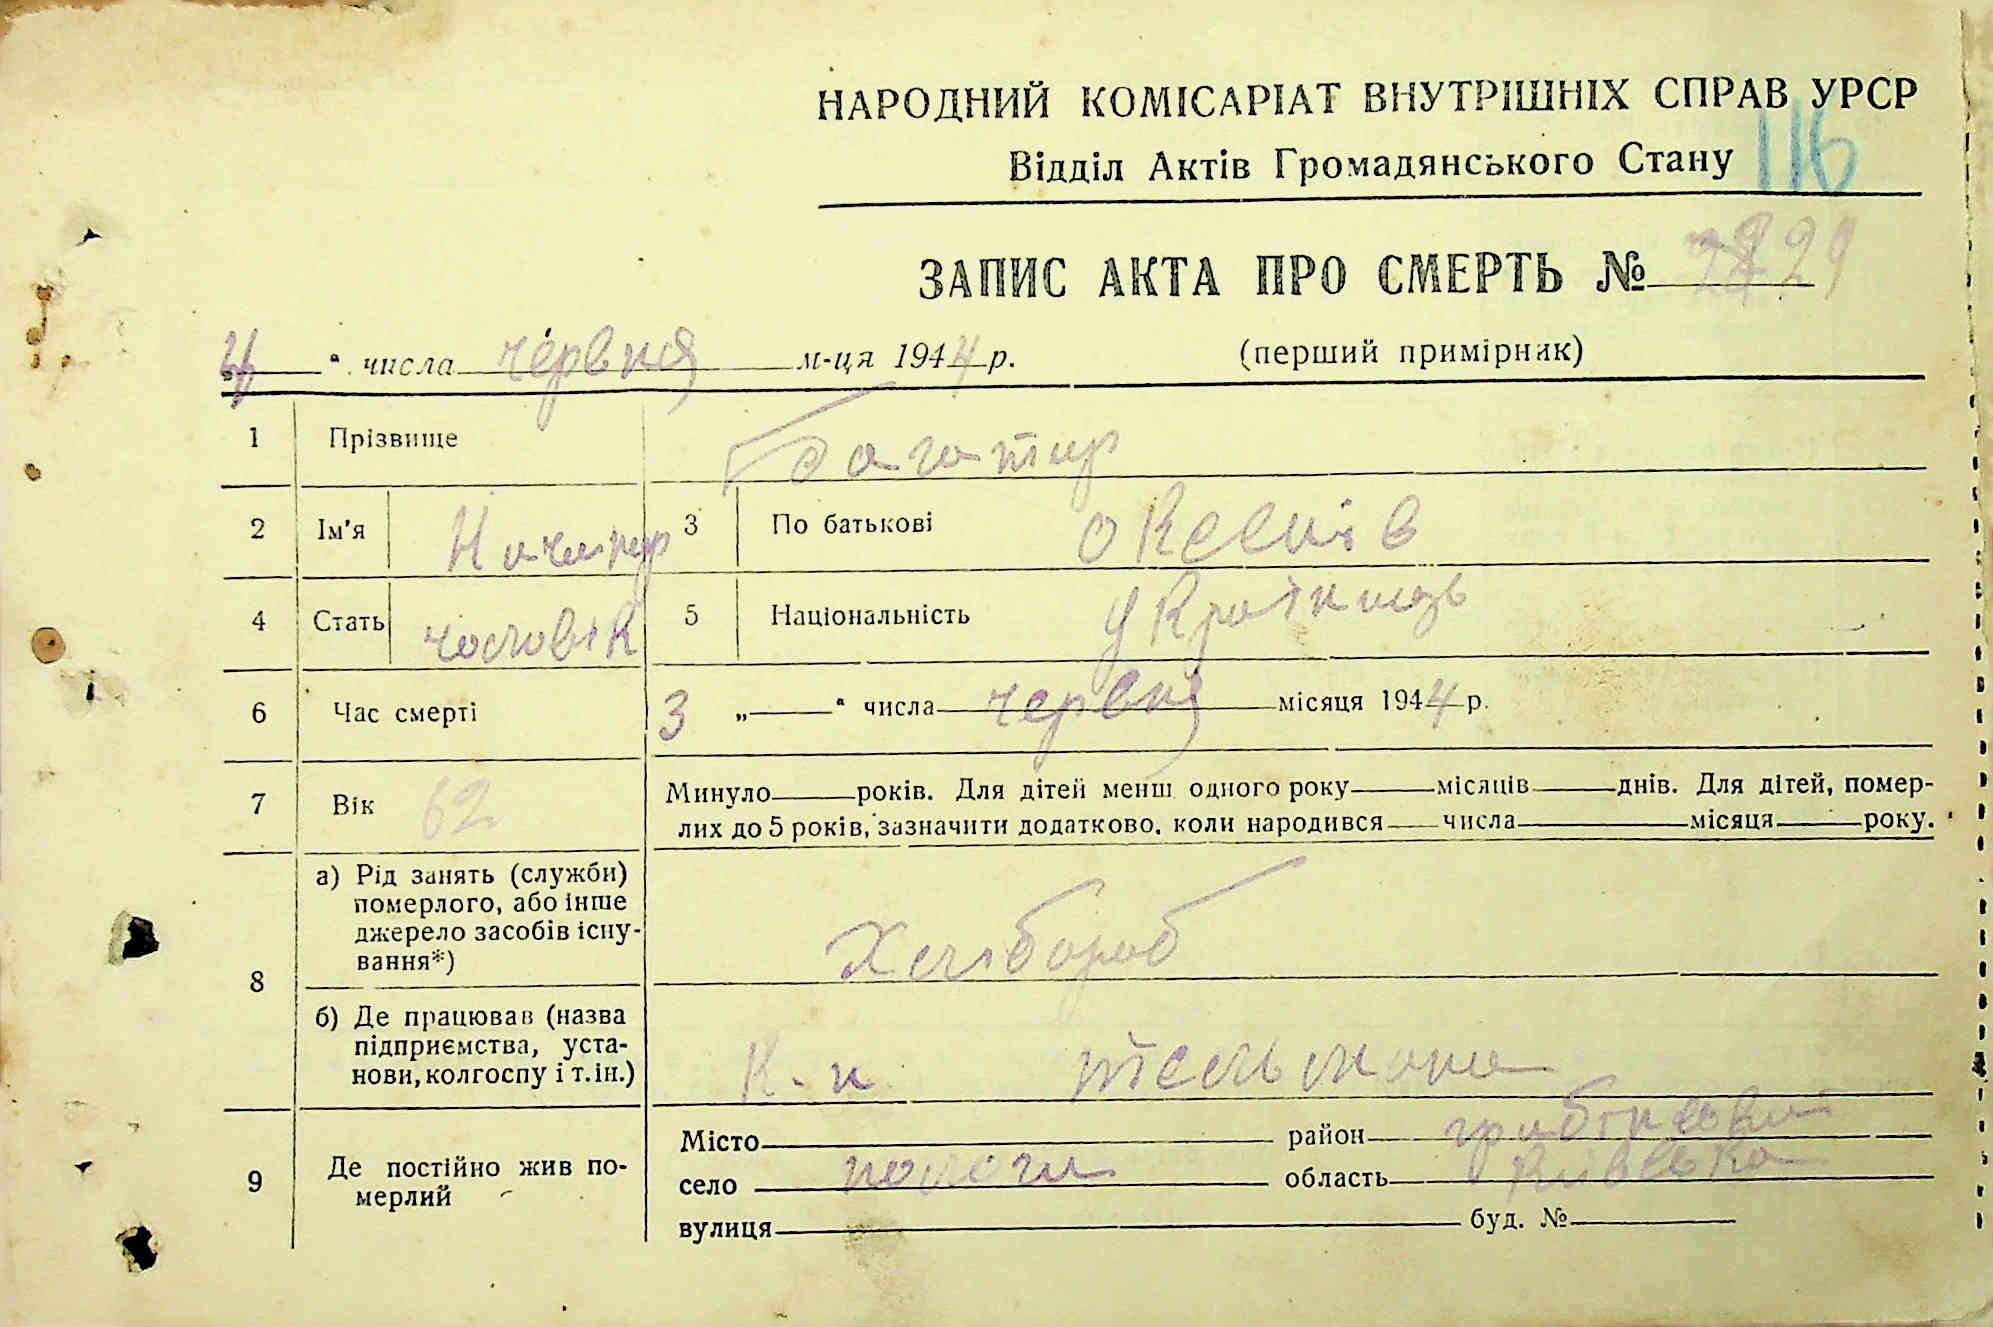 НАРОДНИЙ КОМІСАРІАТ ВНУТРІШНІХ СПРАВ УРСР
Відділ Актів Громадянського Стану 116
ЗАПИС АКТА ПРО СМЕРТЬ № 29
4 " числа червня м-ця 1944 р. (перший примірник)
1 Прізвище Багатир
2 Ім'я Ничипир 3 По батькові Оксенів
4 Стать чоловік 5 Національність Українець
6 Час смерті 3 „ " числа червня місяця 1944 р.
7 Вік 62 Минуло років. Для дітей менш одного року місяців днів. Для дітей, помер-
лих до 5 років, зазначити додатково, коли народився числа місяця року.
8 а) Рід занять (служби)
померлого, або інше
джерело засобів існу-
вання*) Хлібороб
б) Де працював (назва
підприємства, уста-
нови, колгоспу і т. ін.) К-п тельмана
9 Де постійно жив по-
мерлий
Місто район
село пологи область Київська
вулиця буд. №